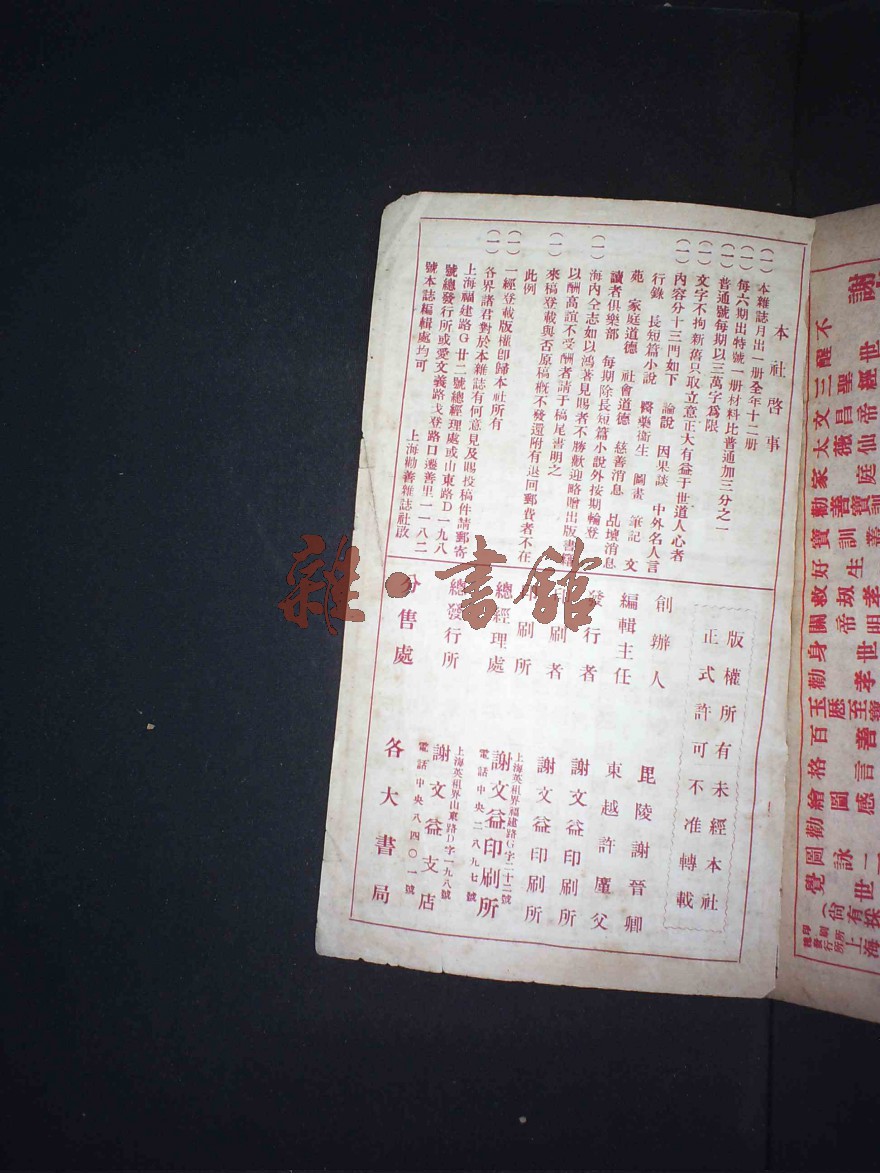 本社啓事
(一)本雜誌月出一册全年十二册
(一)每六期出特號一册材料比普通加三分之一
(一)普通號每期以三萬字爲限
(一)文字不拘新舊只取立意正大有益于世道人心者
(一)內容分十三門如下 論說 因果談 中外名人言
行錄 長短篇小說 醫藥衛生 圖書 筆記 文
苑 家庭道德 社會道德 慈善消息 乩壇消息
讀者俱樂部 每期除長短篇小說外按期輪登
(一)海內仝志如以鴻著見賜者不勝歡迎略贈出版書籍
以酬高誼不受酬者請于稿尾書明之
(一)來稿登載與否原稿概不發還附有退回郵費者不在
此例
(一)一經登載版權卽歸本社所有
(一)各界諸君對於本雜誌有何意見及賜投稿件請郵寄
上海福建路G廿二號總經理處或山東路D一九八
號總發行所或愛文義路戈登路口遷善里一一八二
號本誌編輯處均可 上海勸善雜誌社啟
版權所有未經本社
正式許可不准轉載
創辦人 毘陵謝晉卿
編輯主任 東越許廑父
發行者 謝文益印刷所
印刷者 謝文益印刷所
印刷所
總經理處 上海英租界福建路G字二十二號
謝文益印刷所
電話中央二八九七號
總發行所 上海英租界山東路D字一九八號
謝文益支店
電話中央八四〇一號
分售處 各大書局
雜·書館